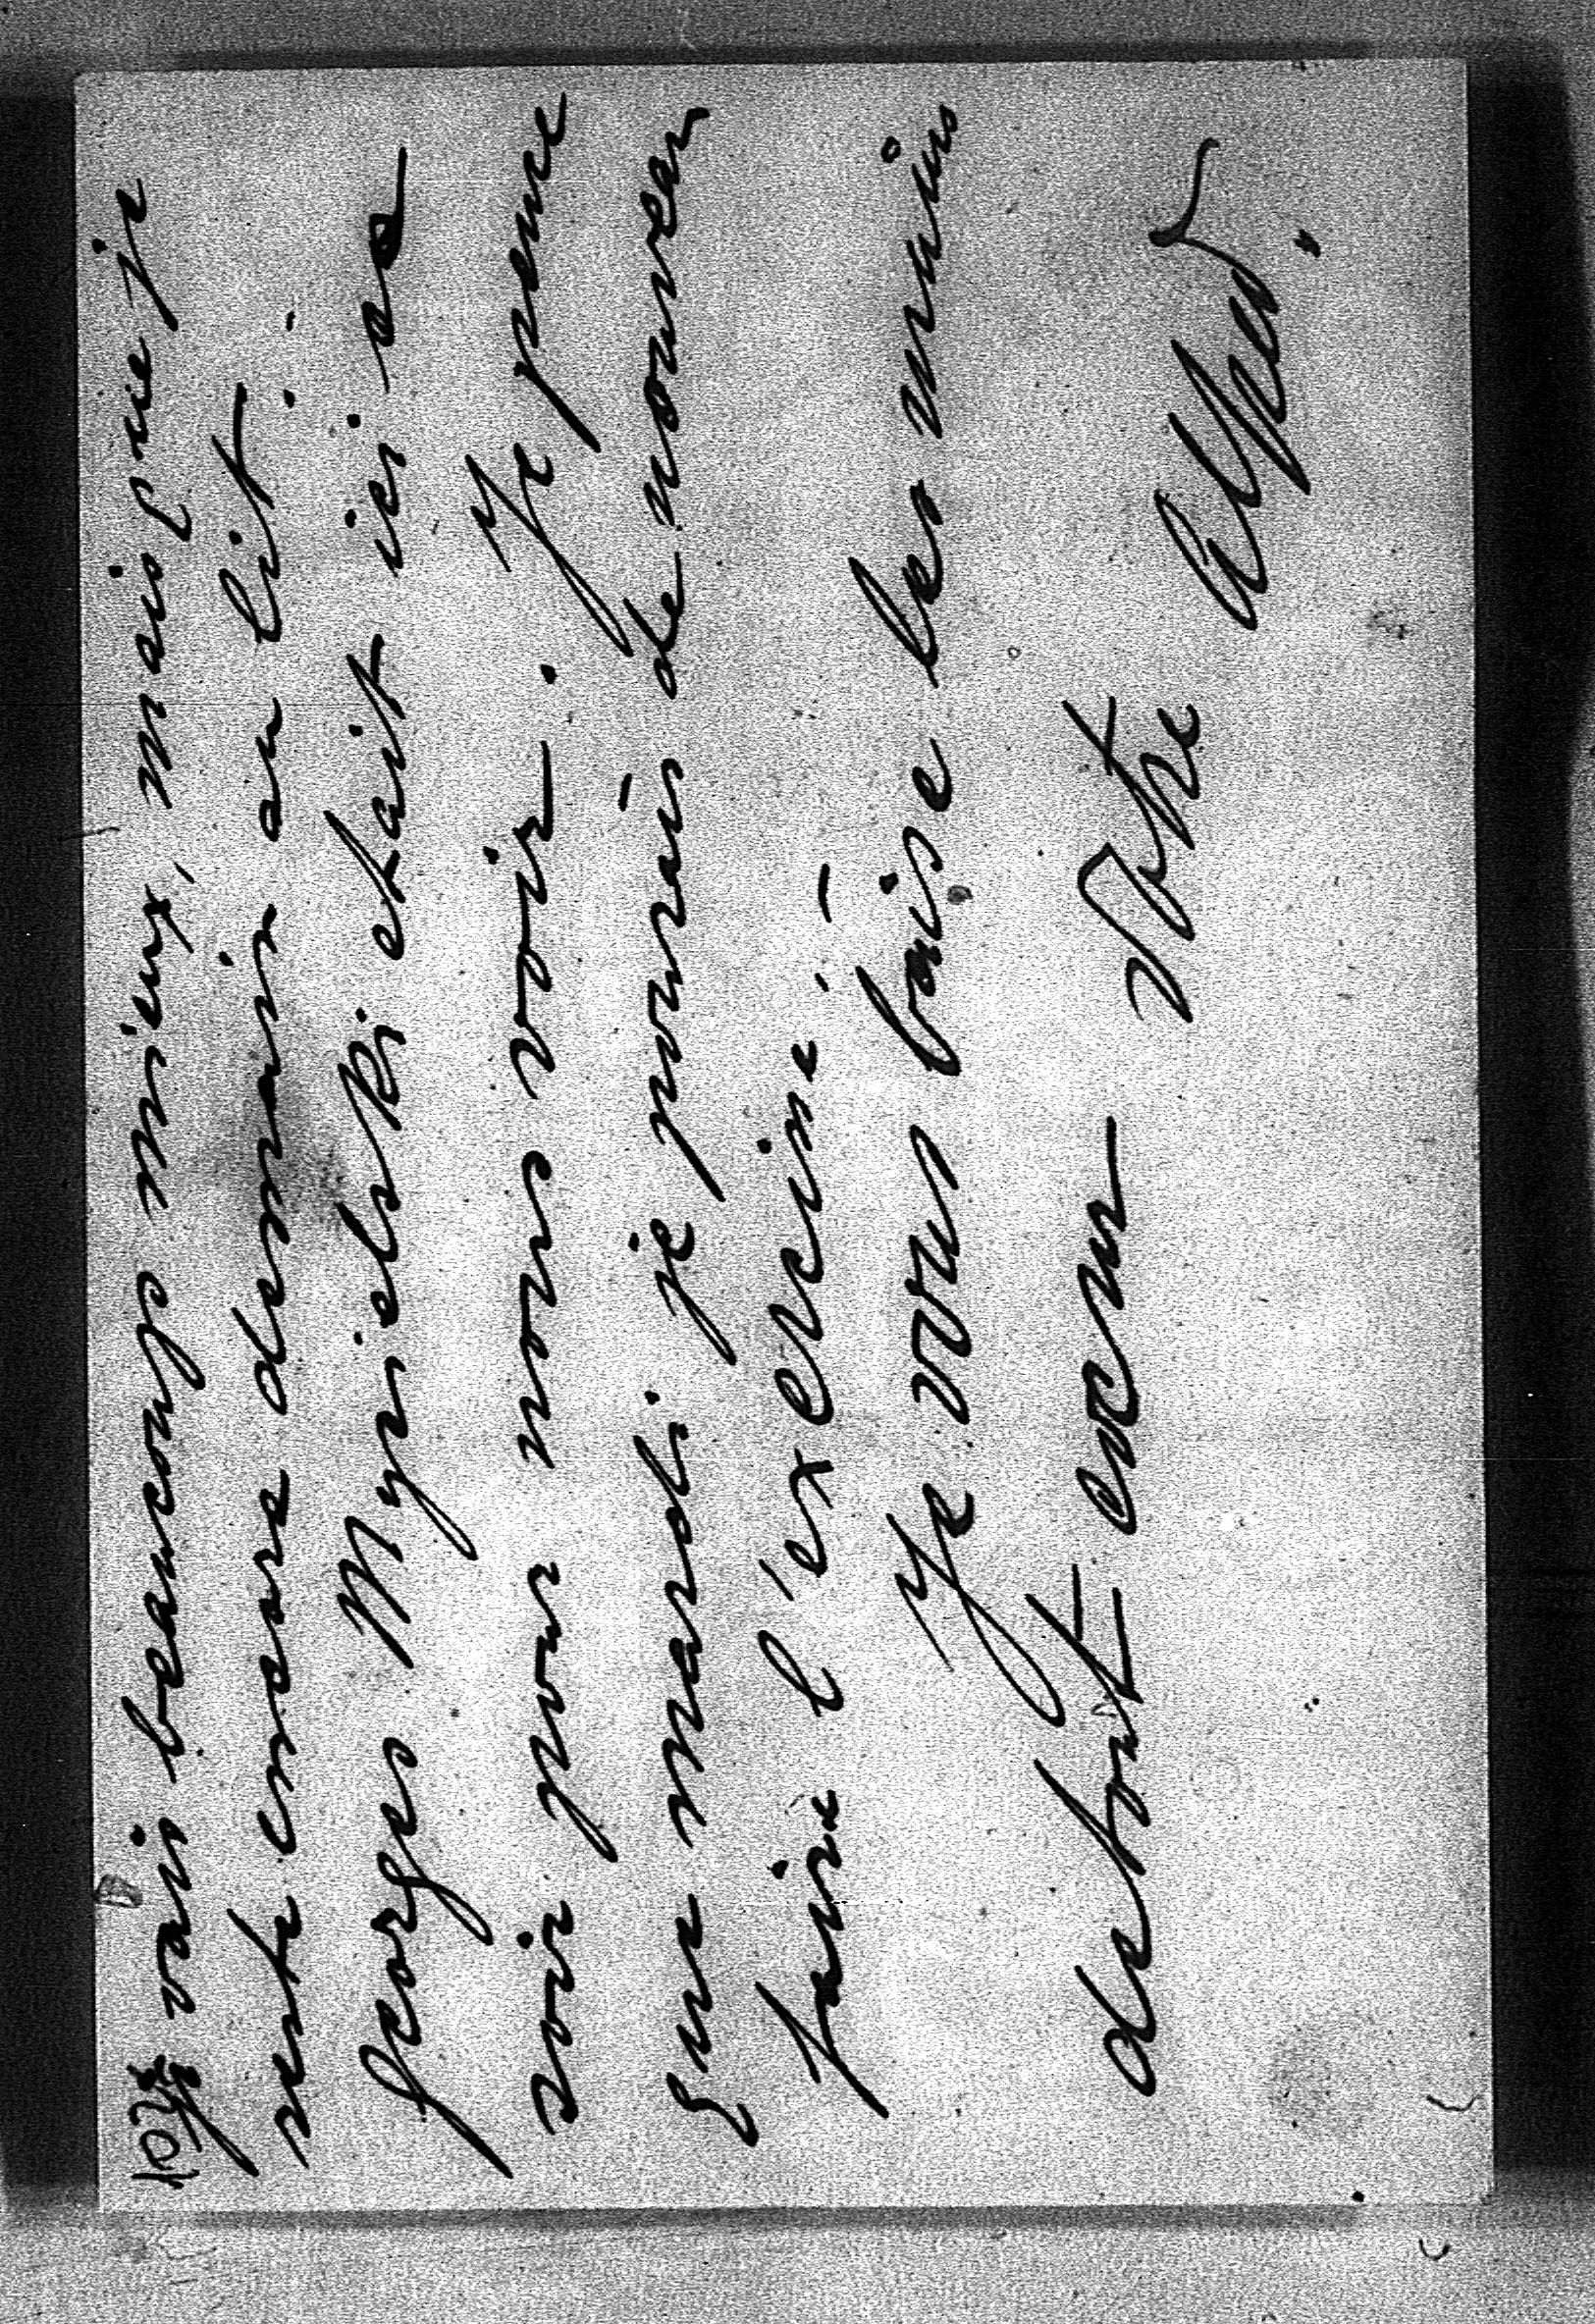 vais beaucoup mieux, mais je
reste encore demain au lit.
Georges Mycielski etait ici ce
soir pour nous voir. Je pense
que mardi je pourais de nouveau
faire l'exercise –
Je vous baise les mains
de tout coeur Votre Alfred.